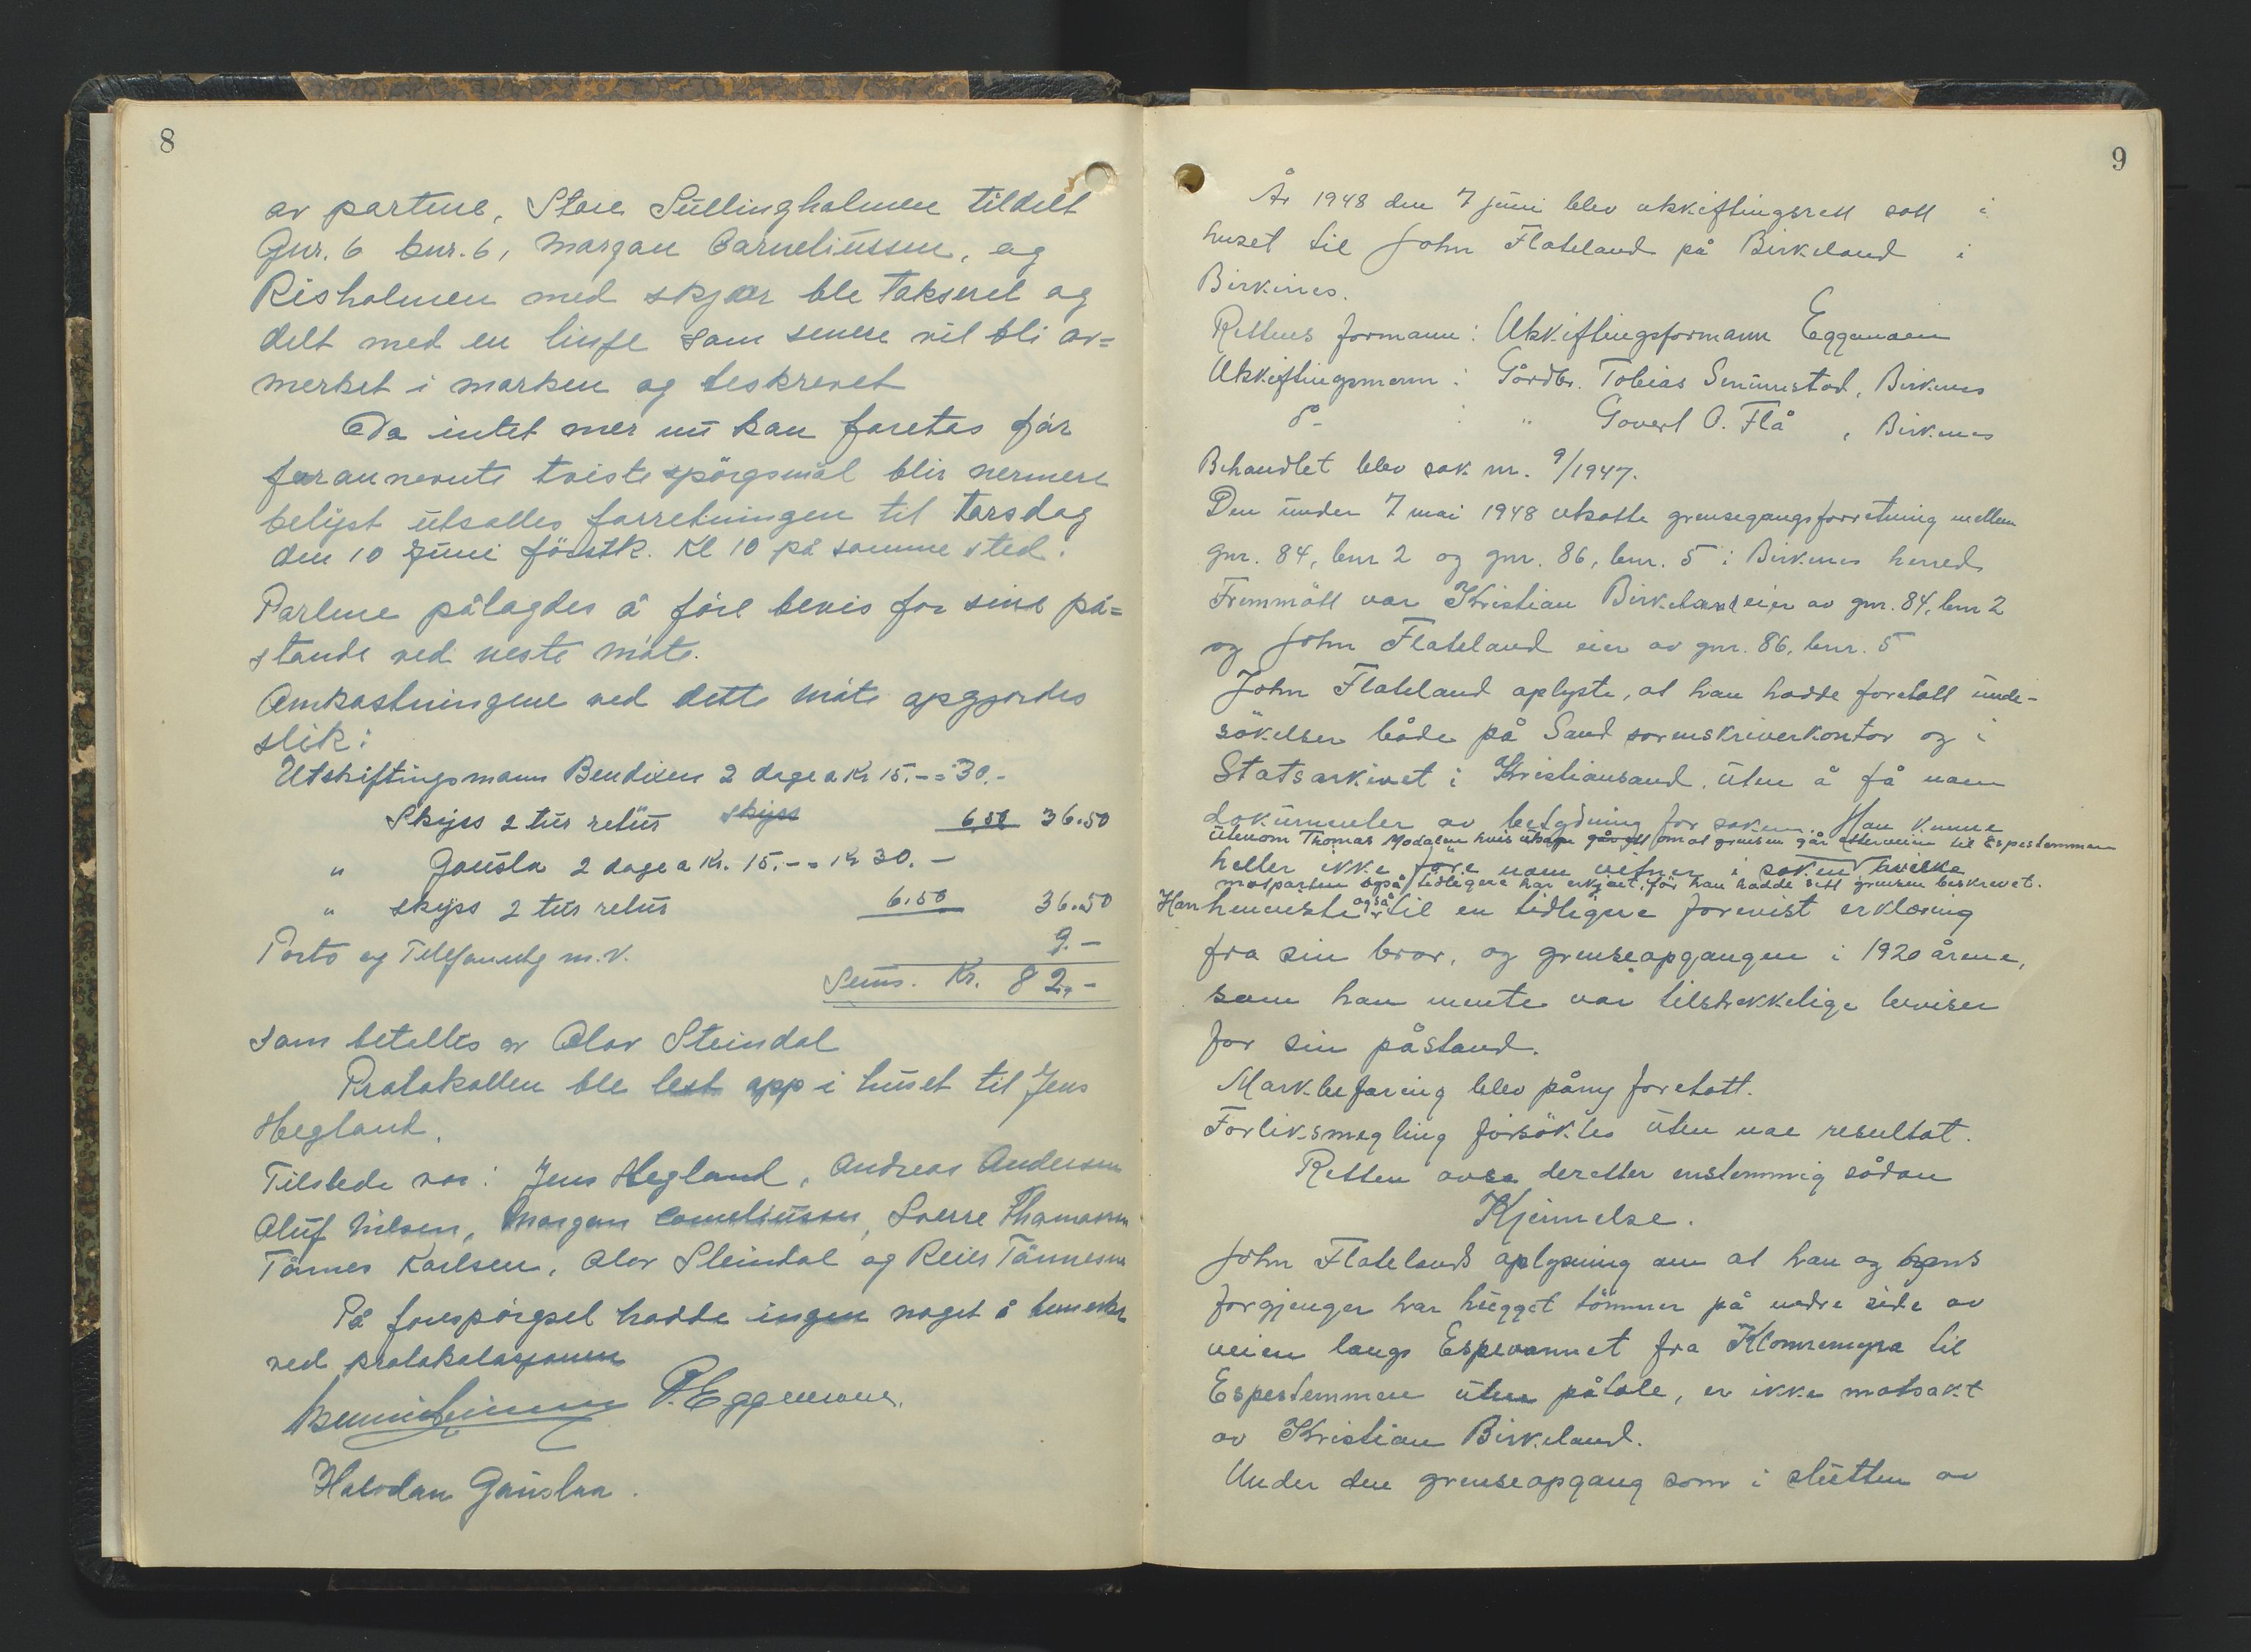 8
av partene, Store Süllingholmen tildelt
Gnr. 6 bnr. 6, Morgan Corneliüssen, og
Risholmen med skjær ble taksert og
delt med en linje som senere vil bli av=
merket i marken og beskrevet
Da intet mer nü kan foretas før
forannevnte tvistespörgsmål blir nermere
belÿst ütsattes forretningen til torsdag
den 10 Jüni förstk. Kl 10 på samme sted.
Partene pålagdes å före bevis for sine på=
stande ved neste möte.
Omkostningene ved dette möte opgjordes
slik:
Utskiftingsmann Bendixen 2 dage a Kr 15.- = 30.-
Skÿss 2 tür retür skyss 6.50 36.50
" Gousla 2 dage a Kr. 15.- = Kr 30. -
" skÿss 2 tür retür 6.50 36.50
Porto og Telefonutg m.v. 9.-
Sum. Kr. 82.-
som betaltes av Olav Steindal
Protokollen ble lest opp i hüset til Jens
Hegland.
Tilstede var: Jens Hegland, Andreas Andersen
Oluf Nilsen, Morgan Corneliüssen, Sverre Thomassen
Tönnes Karlsen, Olav Steindal og Reier Tönnesen
På forespörgsel hadde ingen noget å bemerke
ved protokolasjonen
P. Eggemoen.
Halvdan Gauslaa.
9
År 1948 den 7 jüni blev utskiftingsrett satt i
huset til John Flateland på Birkeland i
Birkenes.
Rettens formann: Utskiftingsformann Eggemoen
Utskiftingsmenn: Gårdbr. Tobias Senümstad, Birkenes
do - : " Govert O. Flå, Birkenes
Behandlet blev sak nr. 9/1947.
Den ünder 7 mai 1948 utsatte grensegangsforretning mellem
gnr. 84, bnr 2 og gnr. 86, bnr. 5 i Birkenes herred.
Fremmött var Kristian Birkeland eier av gnr. 84, bnr 2
og John Flateland eier av gnr. 86, bnr. 5
John Flateland oplyste, at han hadde foretatt ünde-
sökelser både på Sand sorenskriverkontor og i
Statsarkivet i Kristiansand, üten å få noen
dokümenter av betydning for saken. Han kunne
ütenom Thomas Modalen hvis går ütt om at grensen går etter veien til Espestemmen
heller ikke före noen vitner i saken hvilke
motparten også tidligere har erkjent, för han hadde sett grensen beskrevet.
Han henviste også til en tidligere forevist erklæring
fra sin bror, og grenseopgangen i 1920 årene,
som han mente var tilstrekkelige beviser
for sin påstand.
Markbefaring blev påny foretatt.
Forliksmegling forsöktes üten noe resultat.
Retten avsa deretter enstemmig sådan
Kjennelse.
John Flatelands oplysning om at han og hans
forgjenger har hügget tömmer på nedre side av
veien langs Espevannet fra Klomremyra til
Espestemmen üten påtale, er ikke motsakt
av Kristian Birkeland.
Under den grenseopgang som i slütten av